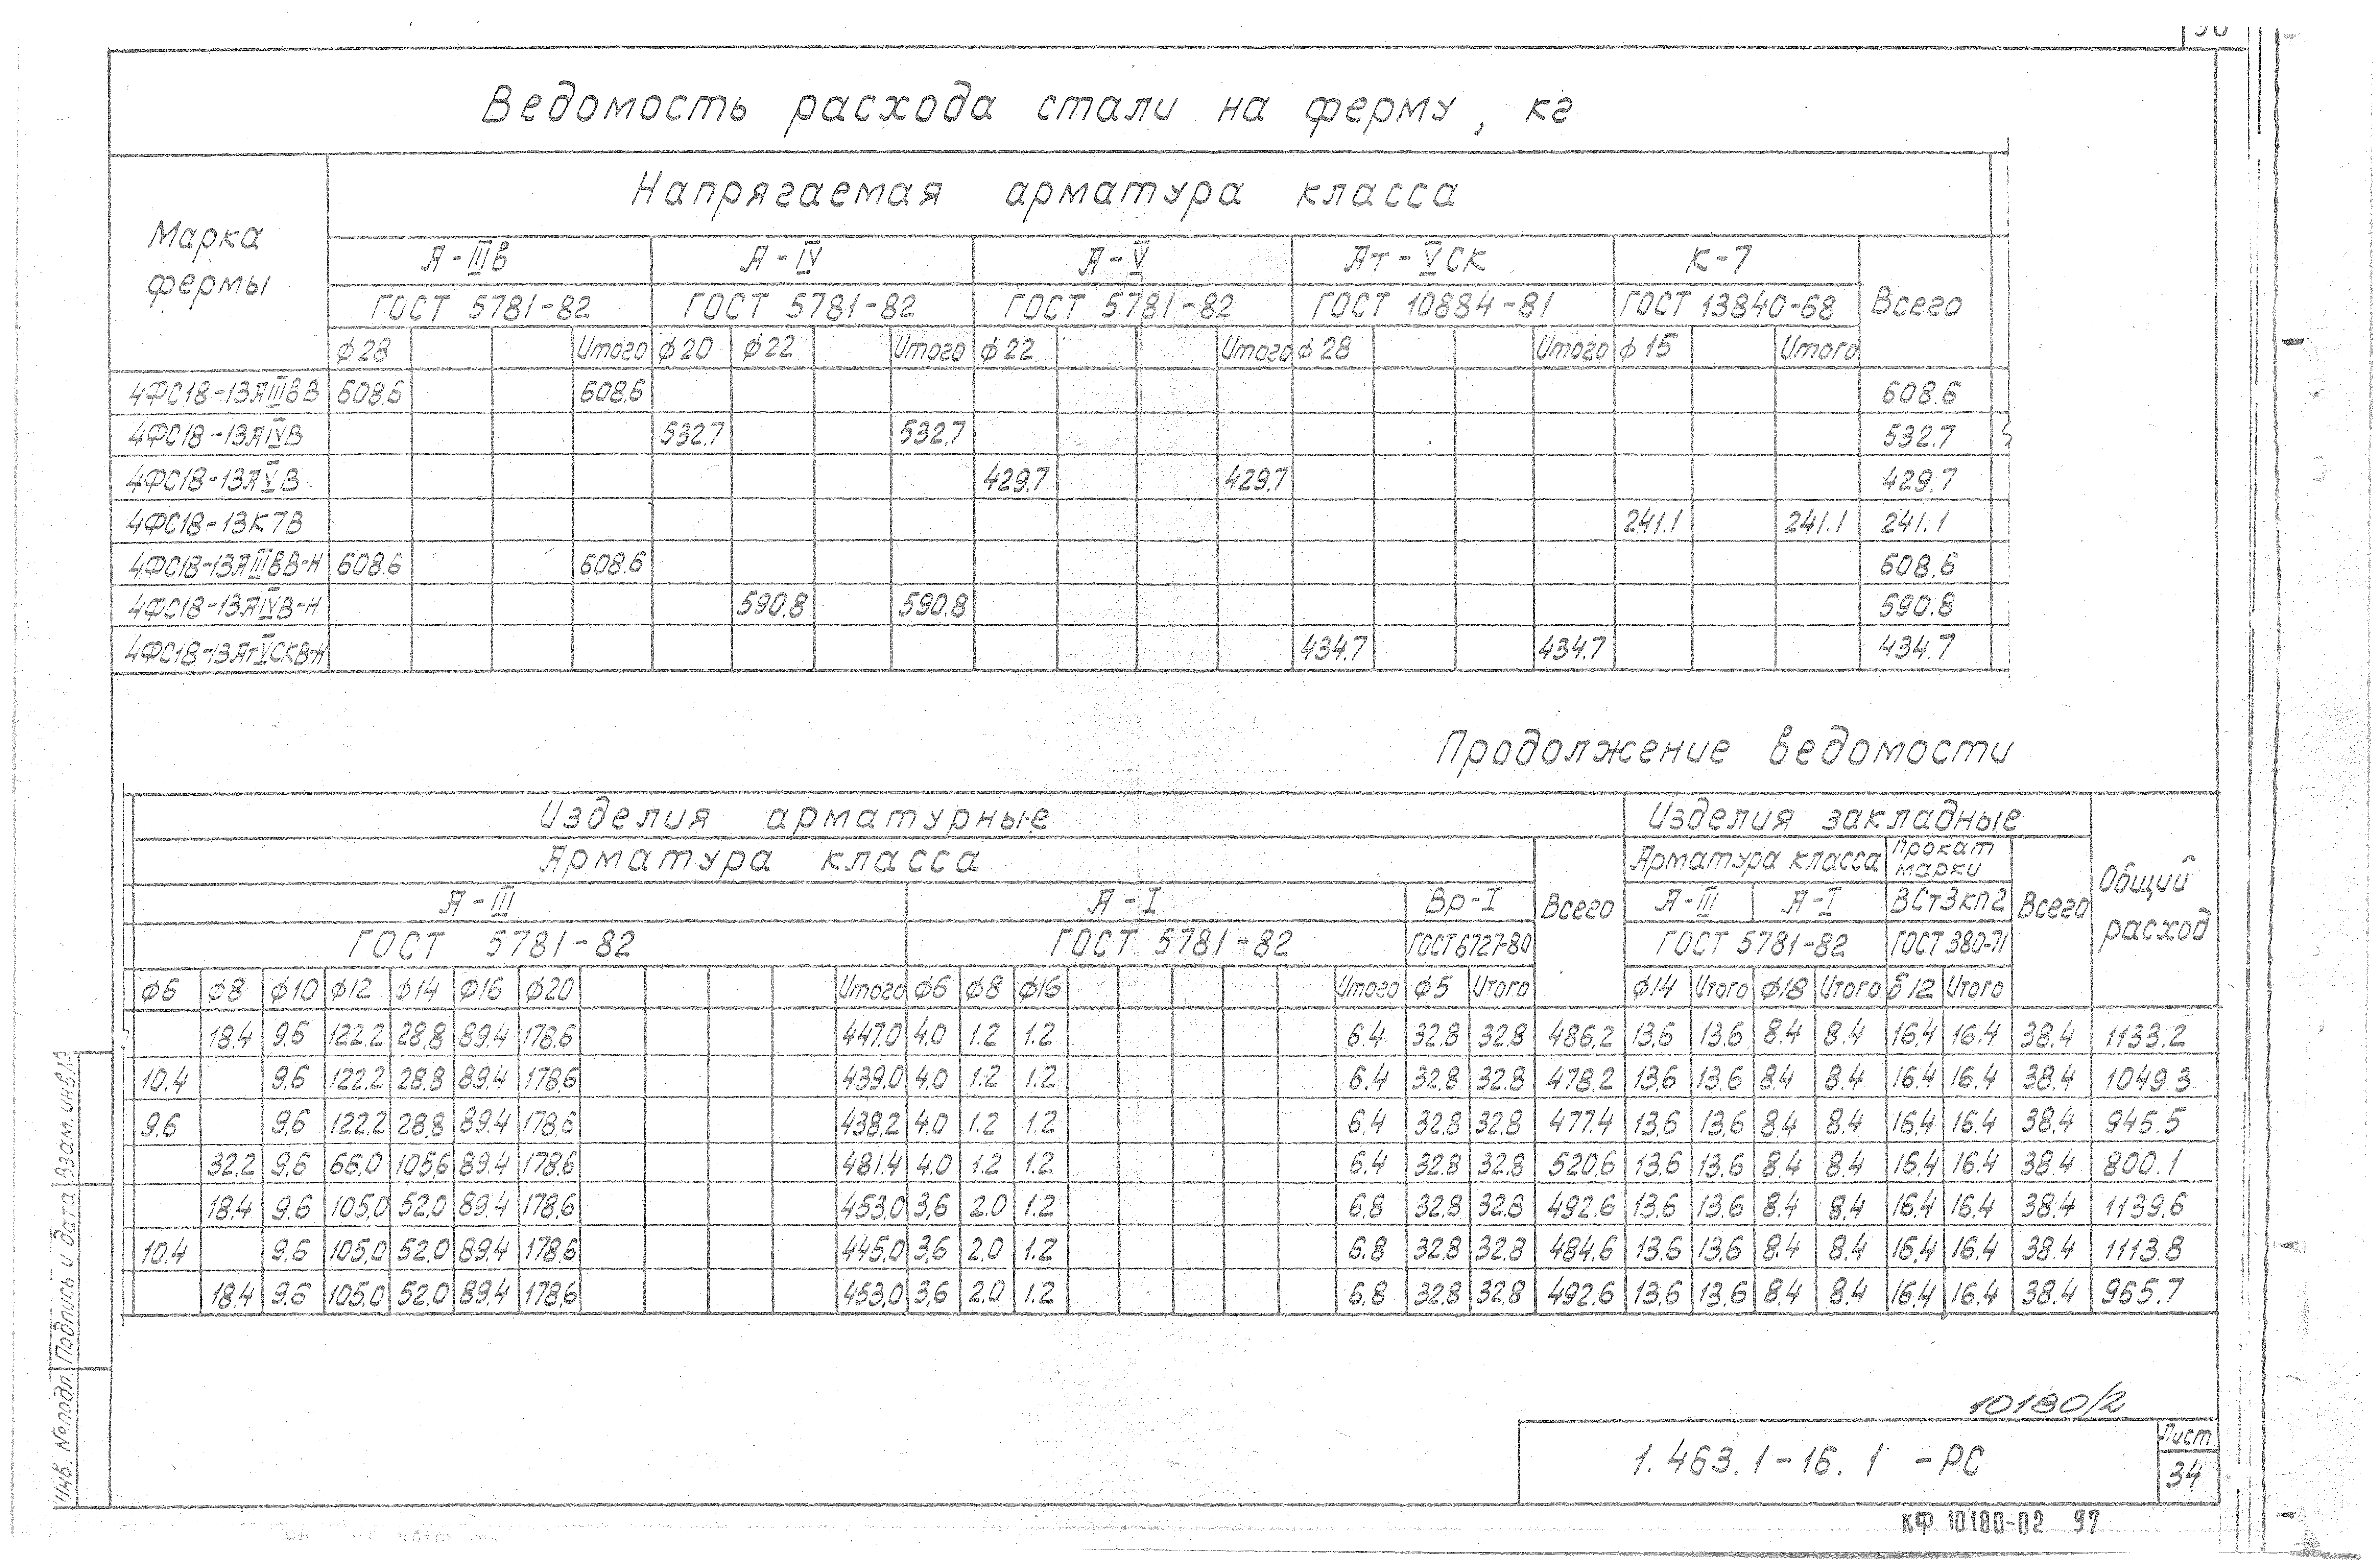 Ведомость расхода стали на ферму, кг
Марка фермы
Напрягаемая арматура класса
А-IIIв А-IV А-V Ат-VСК К-7 Всего
ГОСТ 5781-82 ГОСТ 5781-82 ГОСТ 5781-82 ГОСТ 10884-81 ГОСТ 13840-68
ф28 Итого ф20 ф22 Итого ф22 Итого ф28 Итого ф15 Итого
4ФС18-13АIIIвВ 608.6 608.6 608.6
4ФС18-13АIVВ 532.7 532.7 532.7
4ФС18-13АVВ 429.7 429.7 429.7
4ФС18-13К7В 241.1 241.1 241.1
4ФС18-13АIIIвВ-Н 608.6 608.6 608.6
4ФС18-13АIVВ-Н 590.8 590.8 590.8
4ФС18-13АтVСКВ-Н 434.7 434.7 434.7
Продолжение ведомости
Изделия арматурные Изделия закладные Общий расход
Арматура класса Всего Арматура класса Прокат марки Всего
А-III А-I Вр-I А-III А-I ВСт3кп2
ГОСТ 5781-82 ГОСТ 5781-82 ГОСТ 6727-80 ГОСТ 5781-82 ГОСТ 380-71
ф6 ф8 ф10 ф12 ф14 ф16 ф20 Итого ф6 ф8 ф16 Итого ф5 Итого ф14 Итого ф18 Итого δ12 Итого
18.4 9.6 122.2 28.8 89.4 178.6 447.0 4.0 1.2 1.2 6.4 32.8 32.8 486.2 13.6 13.6 8.4 8.4 16.4 16.4 38.4 1133.2
10.4 9.6 122.2 28.8 89.4 178.6 439.0 4.0 1.2 1.2 6.4 32.8 32.8 478.2 13.6 13.6 8.4 8.4 16.4 16.4 38.4 1049.3
9.6 9.6 122.2 28.8 89.4 178.6 438.2 4.0 1.2 1.2 6.4 32.8 32.8 477.4 13.6 13.6 8.4 8.4 16.4 16.4 38.4 945.5
32.2 9.6 66.0 105.6 89.4 178.6 481.4 4.0 1.2 1.2 6.4 32.8 32.8 520.6 13.6 13.6 8.4 8.4 16.4 16.4 38.4 800.1
18.4 9.6 105.0 52.0 89.4 178.6 453.0 3.6 2.0 1.2 6.8 32.8 32.8 492.6 13.6 13.6 8.4 8.4 16.4 16.4 38.4 1139.6
10.4 9.6 105.0 52.0 89.4 178.6 445.0 3.6 2.0 1.2 6.8 32.8 32.8 484.6 13.6 13.6 8.4 8.4 16.4 16.4 38.4 1113.8
18.4 9.6 105.0 52.0 89.4 178.6 453.0 3.6 2.0 1.2 6.8 32.8 32.8 492.6 13.6 13.6 8.4 8.4 16.4 16.4 38.4 965.7
Инв. № подл. Подпись и дата Взам. инв. №
10180/2
1.463.1-16.1 -РС
Лист
34
КФ 10180-02 97